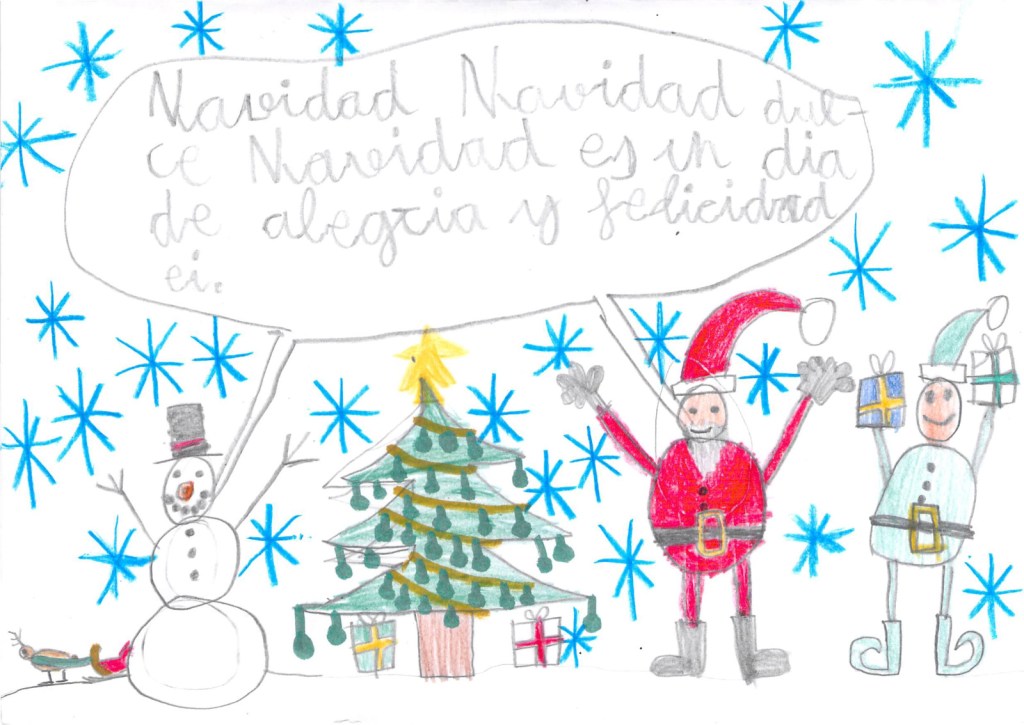 Navidad Navidad dul-
ce Navidad es un dia
de alegria y felicidad
ei.